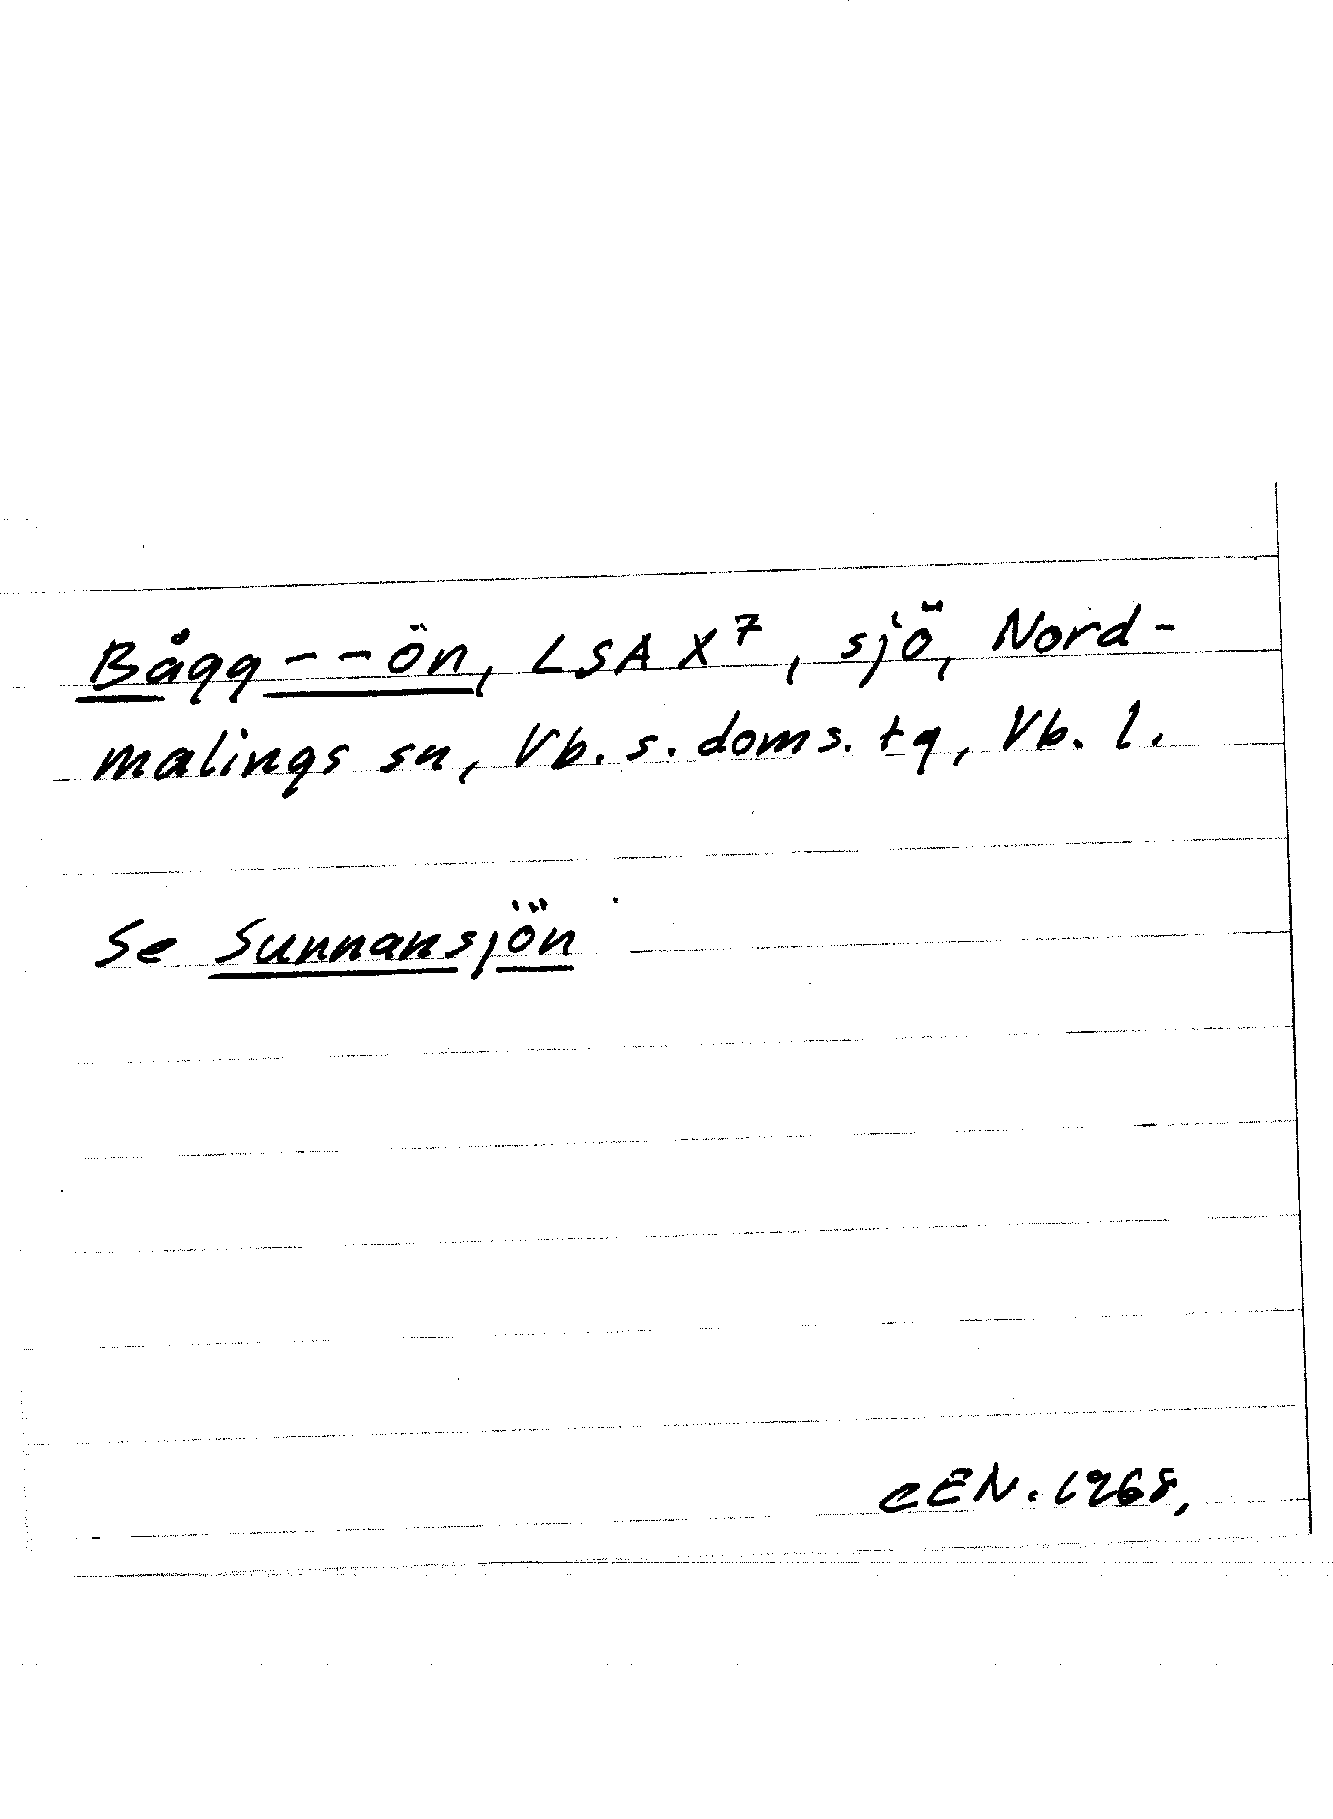 Bågg--ön, LSA X⁷, sjö, Nord-
malings sn, Vb. s. doms. tg, Vb. l.
Se Sunnansjön
CEN. 1968.